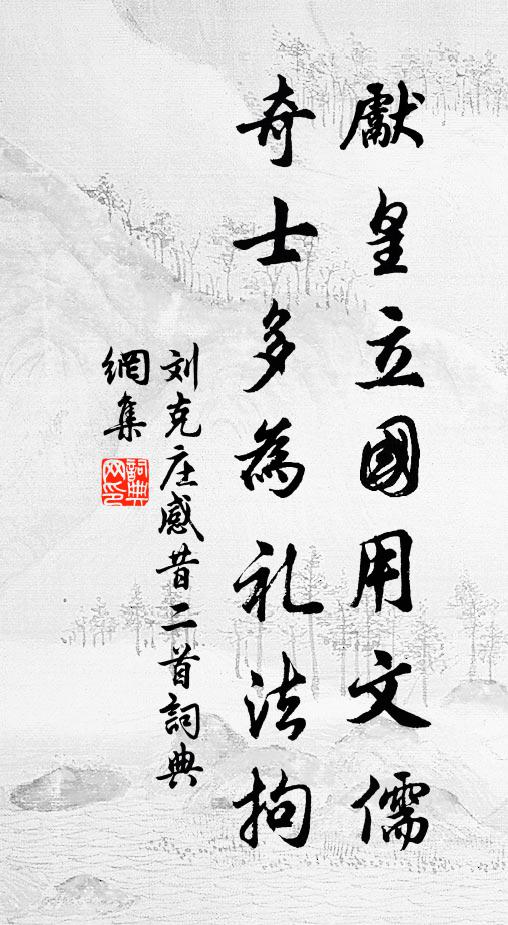 獻皇立國用文儒
奇士多為礼法拘
刘克庄感昔二首詞典
網集
詞典
网印